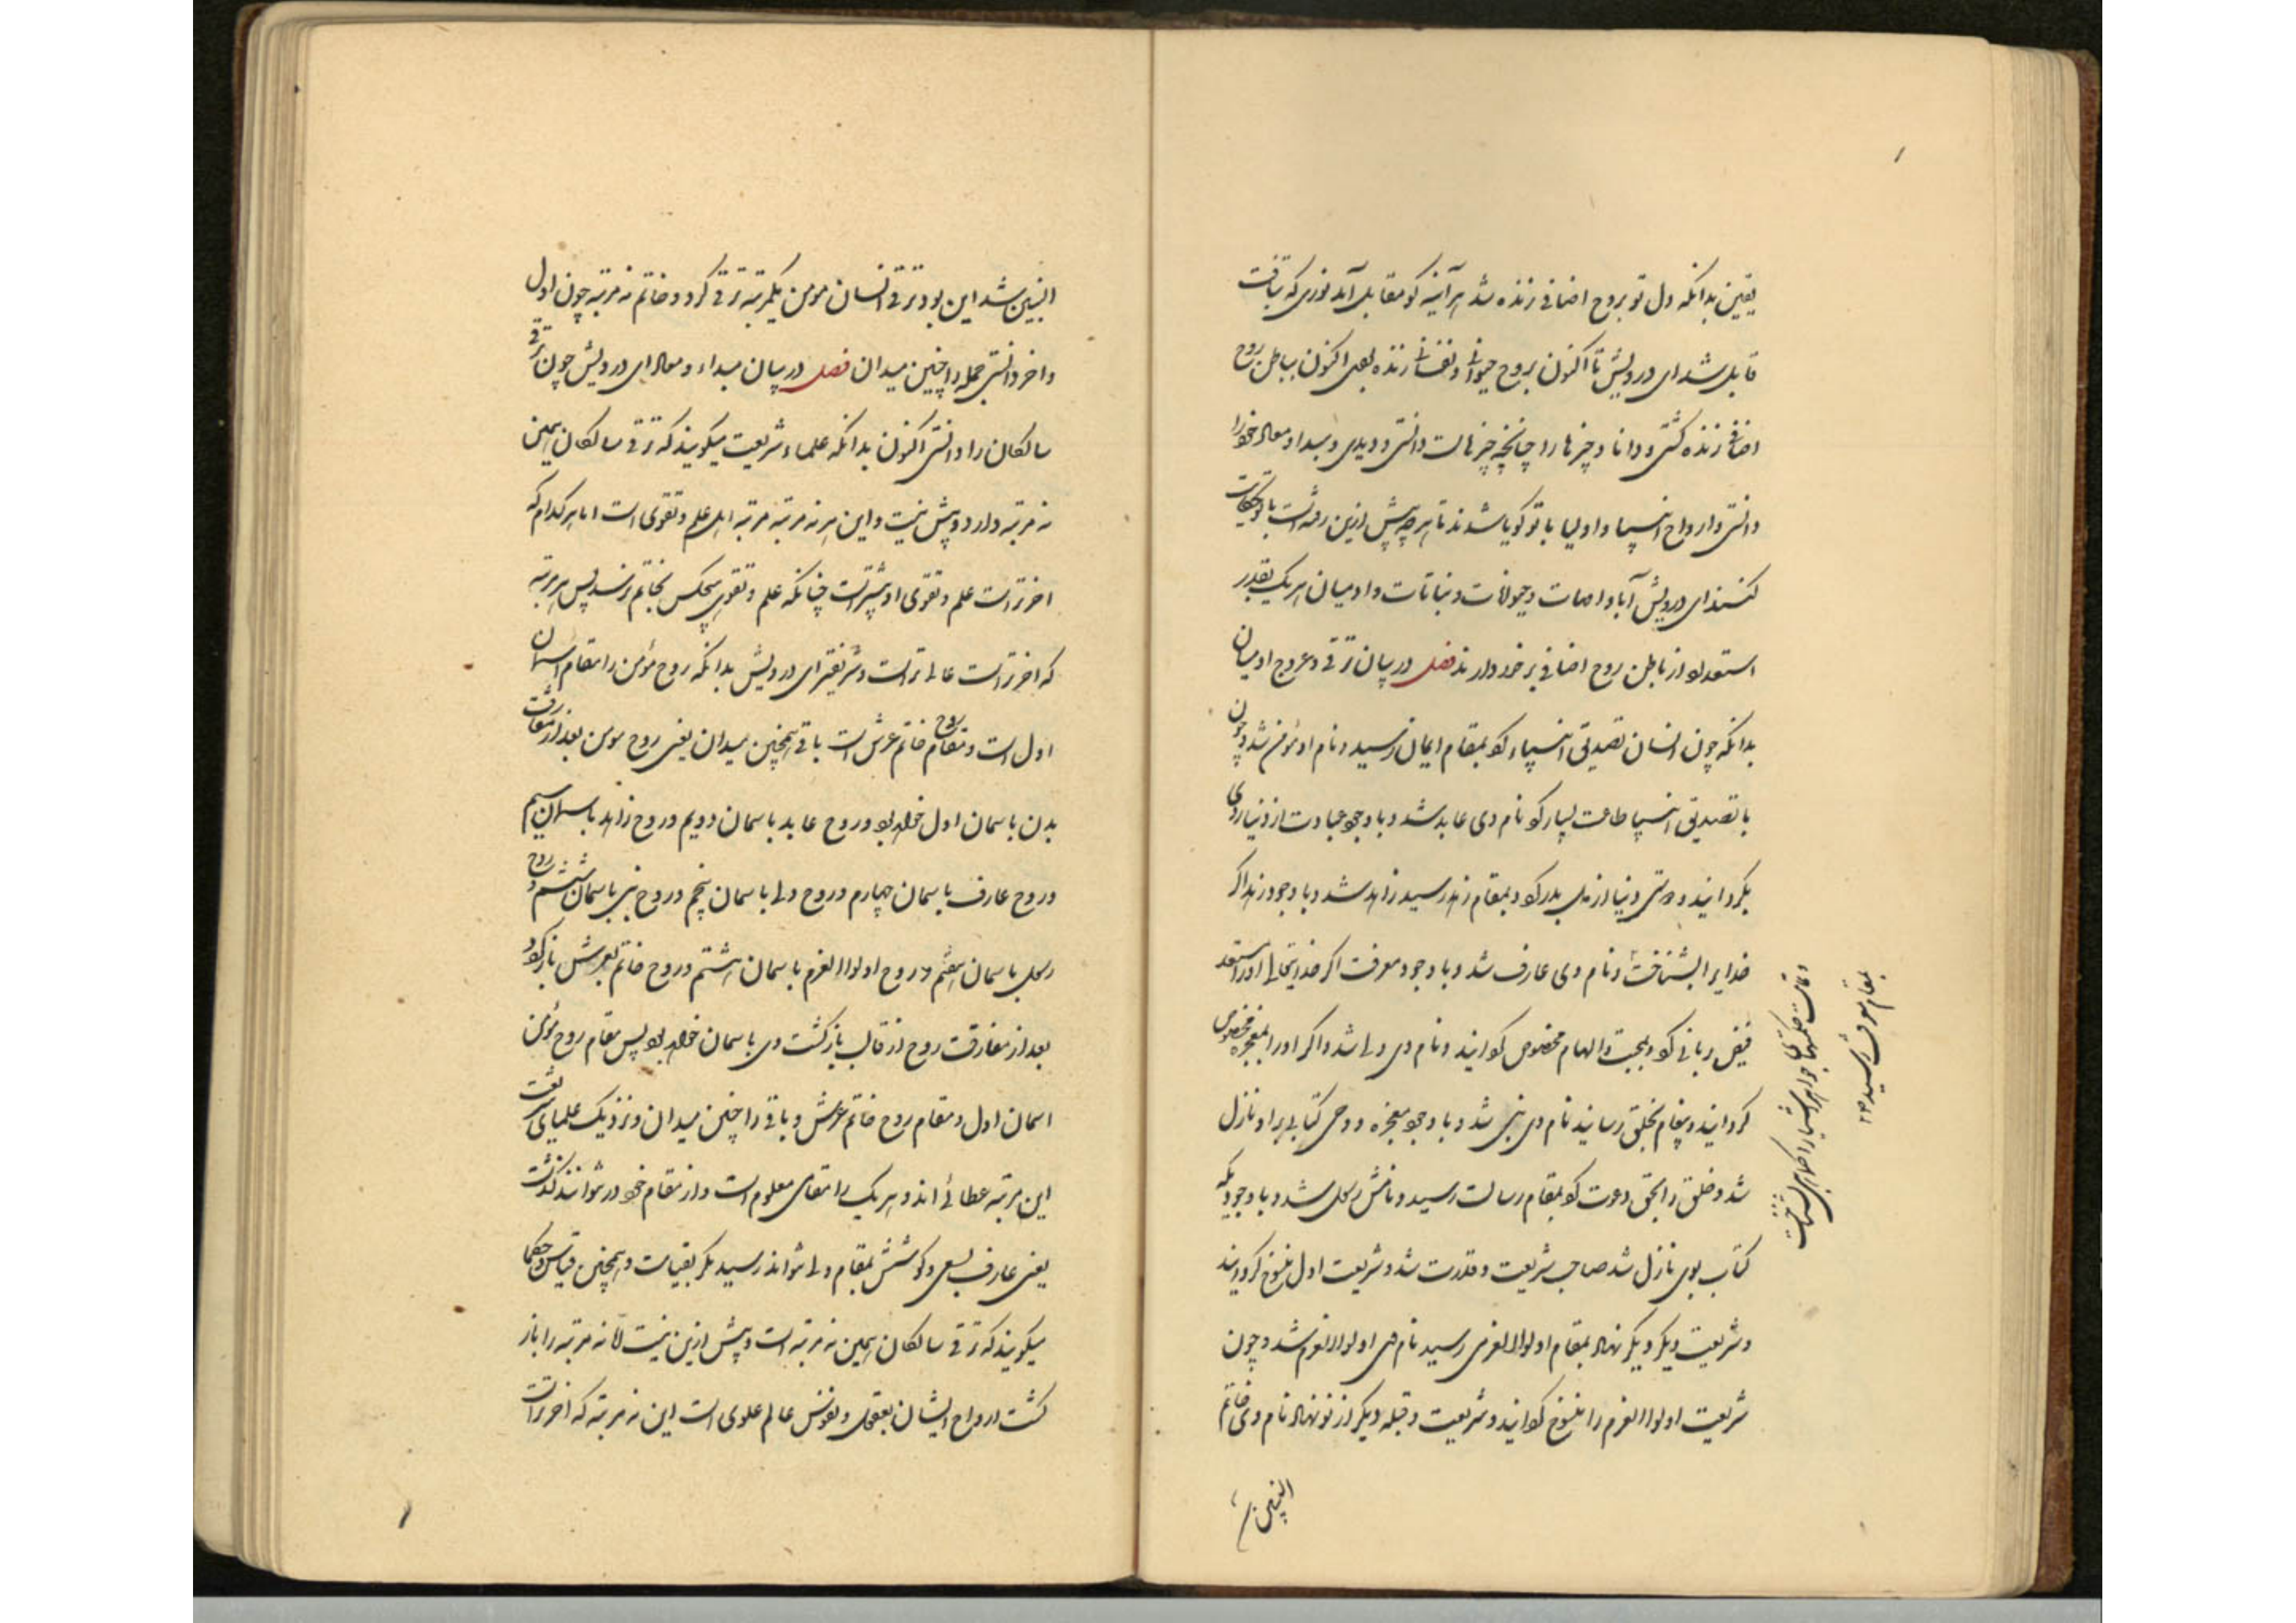 یقین بدانکه دل تو بروح اضافی زنده شد هر آینه کو مقابل آمد نوری که بتافت
قابل شد ای درویش تا اکنون بروح حیوانی و نفسانی زنده بودی اکنون بباطن روح
اضافی زنده گشتی و دانا و چیزها را چنانچه چیزهاست دانستی و دیدی و مبداء و معاد خود را
دانستی و ارواح انبیا و اولیا با تو گویا شدند تا هر چه پیش ازین رفته است با تو حکایت
کنند ای درویش آبا و امهات و حیوانات و نباتات و آدمیان هر یک بقدر
استعداد از باطن روح اضافی برخوردارند فصل در بیان ترقی و عروج آدمیان
بدانکه چون انسان تصدیق انبیاء کرد بمقام ایمان رسید و نام او مؤمن شد و چون
با تصدیق انبیا طاعت بسیار کرد نام وی عابد شد و با وجود عبادت از دنیا روی
بگردانید و دوستی دنیا از دل بدر کرد بمقام زهد رسید زاهد شد و با وجود زهد اگر
خدایرا بشناخت و نام وی عارف شد و با وجود معرفت اگر خدایتعالی او را استعد
فیض ربانی کرد و بمحبت و الهام مخصوص گردانید و نام وی ولی شد و اگر او را بمعجزه مخصوص
گردانید و پیغام بخلق رسانید نام وی نبی شد و با وجود معجزه و وحی کتابی بر او نازل
شد و خلق را بحق دعوت کرد بمقام رسالت رسید و نامش رسل شد و با وجودیکه
کتاب بوی نازل شد صاحب شریعت و قدرت شد و شریعت اول منسوخ گردانید
و شریعت دیگر نهاد بمقام اولوالعزمی رسید نام وی اولوالعزم شد و چون
شریعت اولوالعزم را منسوخ گردانید و شریعت و قبله دیگر از نو نهاد نام وی خاتم
النبیین
حکمتهای جواهر اشیا را کماهی بشناخت
بمقام معرفت رسید
النبیین شد این بود ترقی انسان مومن یکمرتبه ترقی کرد و خاتم نه مرتبه چون اول
و آخر دانستی جمله را چنین میدان فصل در بیان مبداء و معاد ای درویش چون ترقی
سالکان را دانستی اکنون بدانکه علماء شریعت میگویند که ترقی سالکان همین
نه مرتبه دارد و بیش نیست و این هر نه مرتبه مرتبه اهل علم و تقوی است اما هر کدام که
آخرتر است علم و تقوی او بیشتر است چنانکه علم و تقوی هیچکس بخاتم نرسد پس هر مرتبه
که آخرتر است عالی تر است و شریفتر ای درویش بدانکه روح مؤمن را مقام آسمان
اول است و مقام روح خاتم عرش است باقی همچنین میدان یعنی روح مومن بعد از مفارقت
بدن باسمان اول خواهد بود و روح عابد باسمان دویم و روح زاهد باسمان سیم
و روح عارف باسمان چهارم و روح ولی باسمان پنجم و روح نبی باسمان ششم و روح
رسل باسمان هفتم و روح اولوالعزم باسمان هشتم و روح خاتم بعرش باز گردد
بعد از مفارقت روح از قالب بازگشت وی باسمان خواهد بود پس مقام روح مؤمن
اسمان اول و مقام روح خاتم عرش و باقی را چنین میدان و نزدیک علمای شریعت
این مرتبه عطائی اند و هر یک را مقامی معلوم است و از مقام خود در نتوانند گذشت
یعنی عارف بسعی و کوشش بمقام ولی نتواند رسید مگر بقیامت و همچنین قیاس و حکما
میگویند که ترقی سالکان همین نه مرتبه است و بیش ازین نیست لا نه مرتبه را باز
گشت ارواح ایشان بعقول و نفوس عالم علوی است این نه مرتبه که آخرتر است